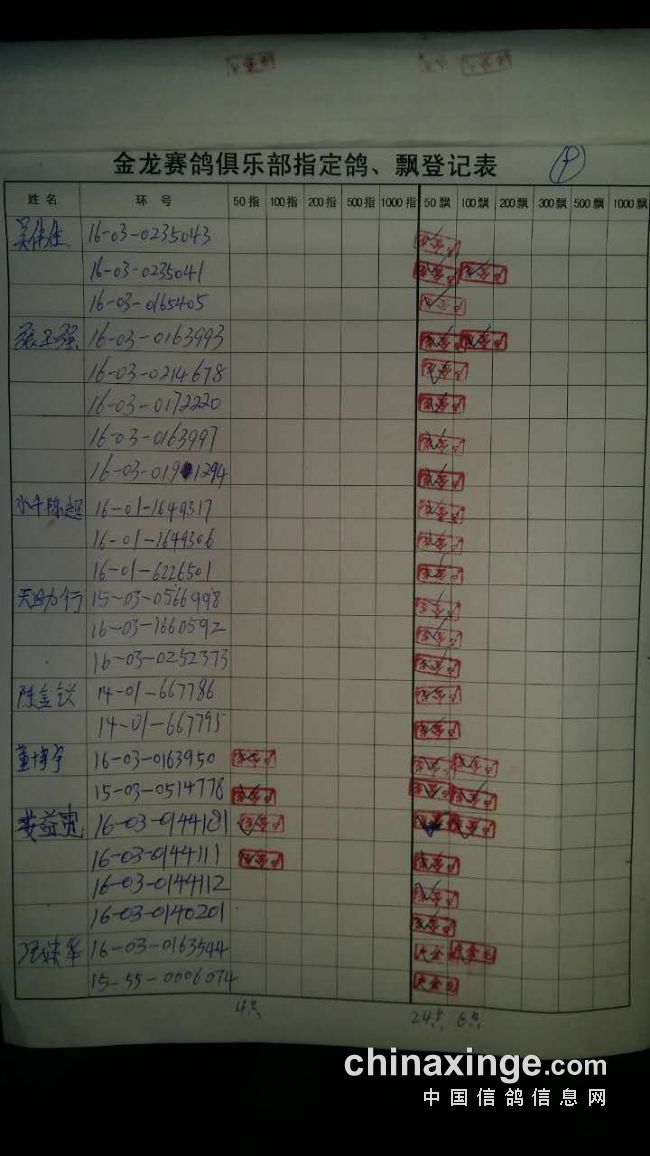 金龙赛鸽俱乐部指定鸽、飘登记表
姓名 环号 50指 100指 200指 500指 1000指 50飘 100飘 200飘 300飘 500飘 1000飘
吴伟佳 16-03-0235043
16-03-0235041
16-03-0165405
张玉强 16-03-0163993
16-03-0214678
16-03-0172220
16-03-0163997
16-03-0191294
陈超 16-01-1649317
16-01-1649306
16-01-6226501
天助力行 15-03-0566998
16-03-1660592
16-03-0252373
陈金 14-01-667786
14-01-667795
董博宇 16-03-0163950
15-03-0514778
16-03-0144181
16-03-0144111
16-03-0144112
16-03-0140201
16-03-0163544
15-55-0006074
4 24 6
chinaxinge.com
中国信鸽信息网